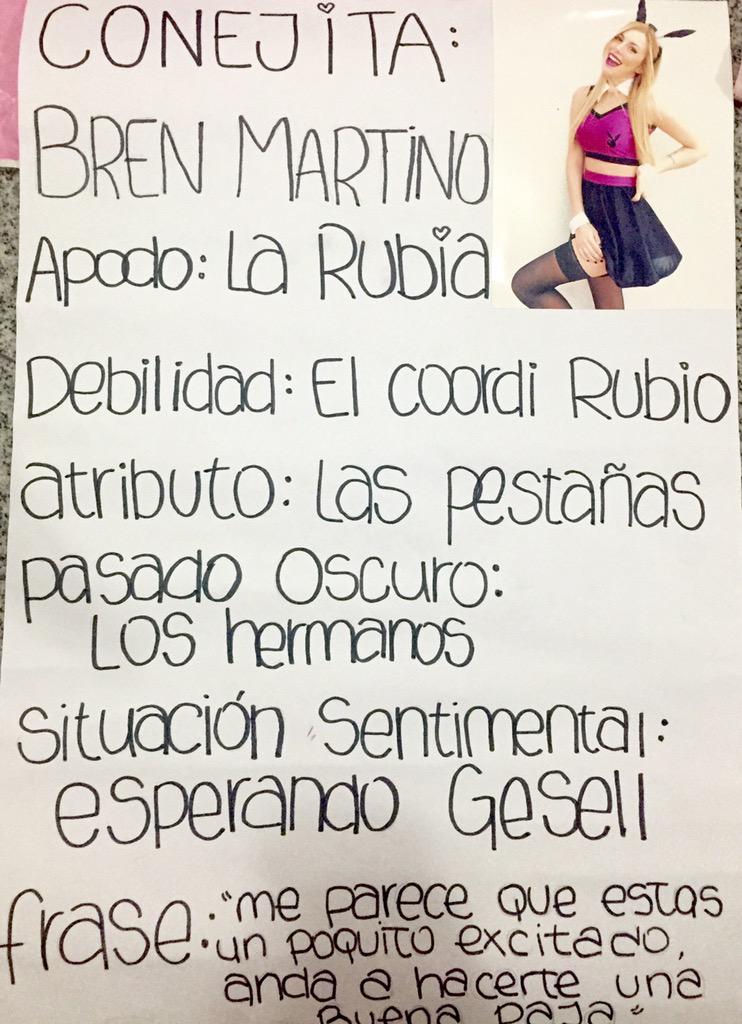 CONEJITA:
BREN MARTINO
Apodo: La Rubia
Debilidad: El coordi Rubio
atributo: Las pestañas
pasado Oscuro:
Los hermanos
situación Sentimental:
esperando Gesell
frase: "me parece que estas
un poquito excitado,
anda a hacerte una
Buena paja"